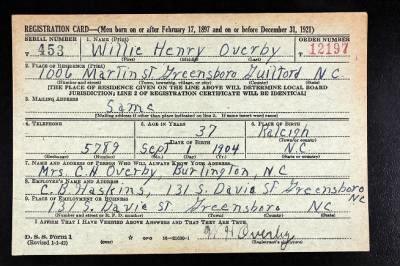 REGISTRATION CARD—(Men born on or after February 17, 1897 and on or before December 31, 1921)
SERIAL NUMBER 1. NAME (Print) ORDER NUMBER
T 453 Willie Henry Overby T 12197
(First) (Middle) (Last)
2. PLACE OF RESIDENCE (Print)
1006 Martin St Greensboro Guilford N.C.
(Number and street) (Town, township, village, or city) (County) (State)
[THE PLACE OF RESIDENCE GIVEN ON THE LINE ABOVE WILL DETERMINE LOCAL BOARD
JURISDICTION; LINE 2 OF REGISTRATION CERTIFICATE WILL BE IDENTICAL]
3. MAILING ADDRESS
Same
[Mailing address if other than place indicated on line 2. If same insert word same]
4. TELEPHONE 5. AGE IN YEARS 6. PLACE OF BIRTH
37 Raleigh
DATE OF BIRTH (Town or county)
5789 Sept 1 1904 N.C.
(Mo.) (Day) (Yr.) (State or country)
7. NAME AND ADDRESS OF PERSON WHO WILL ALWAYS KNOW YOUR ADDRESS
Mrs. C.H. Overby Burlington, N.C.
8. EMPLOYER'S NAME AND ADDRESS
C.B. Haskins, 131 S. Davie St Greensboro NC
9. PLACE OF EMPLOYMENT OR BUSINESS
131 S. Davie St Greensboro NC
(Number and street or R. F. D. number) (Town) (County) (State)
I AFFIRM THAT I HAVE VERIFIED ABOVE ANSWERS AND THAT THEY ARE TRUE.
D. S. S. Form 1
(Revised 1-1-42) (over) GPO 16—21630-1 W. H. Overby
(Registrant's signature)